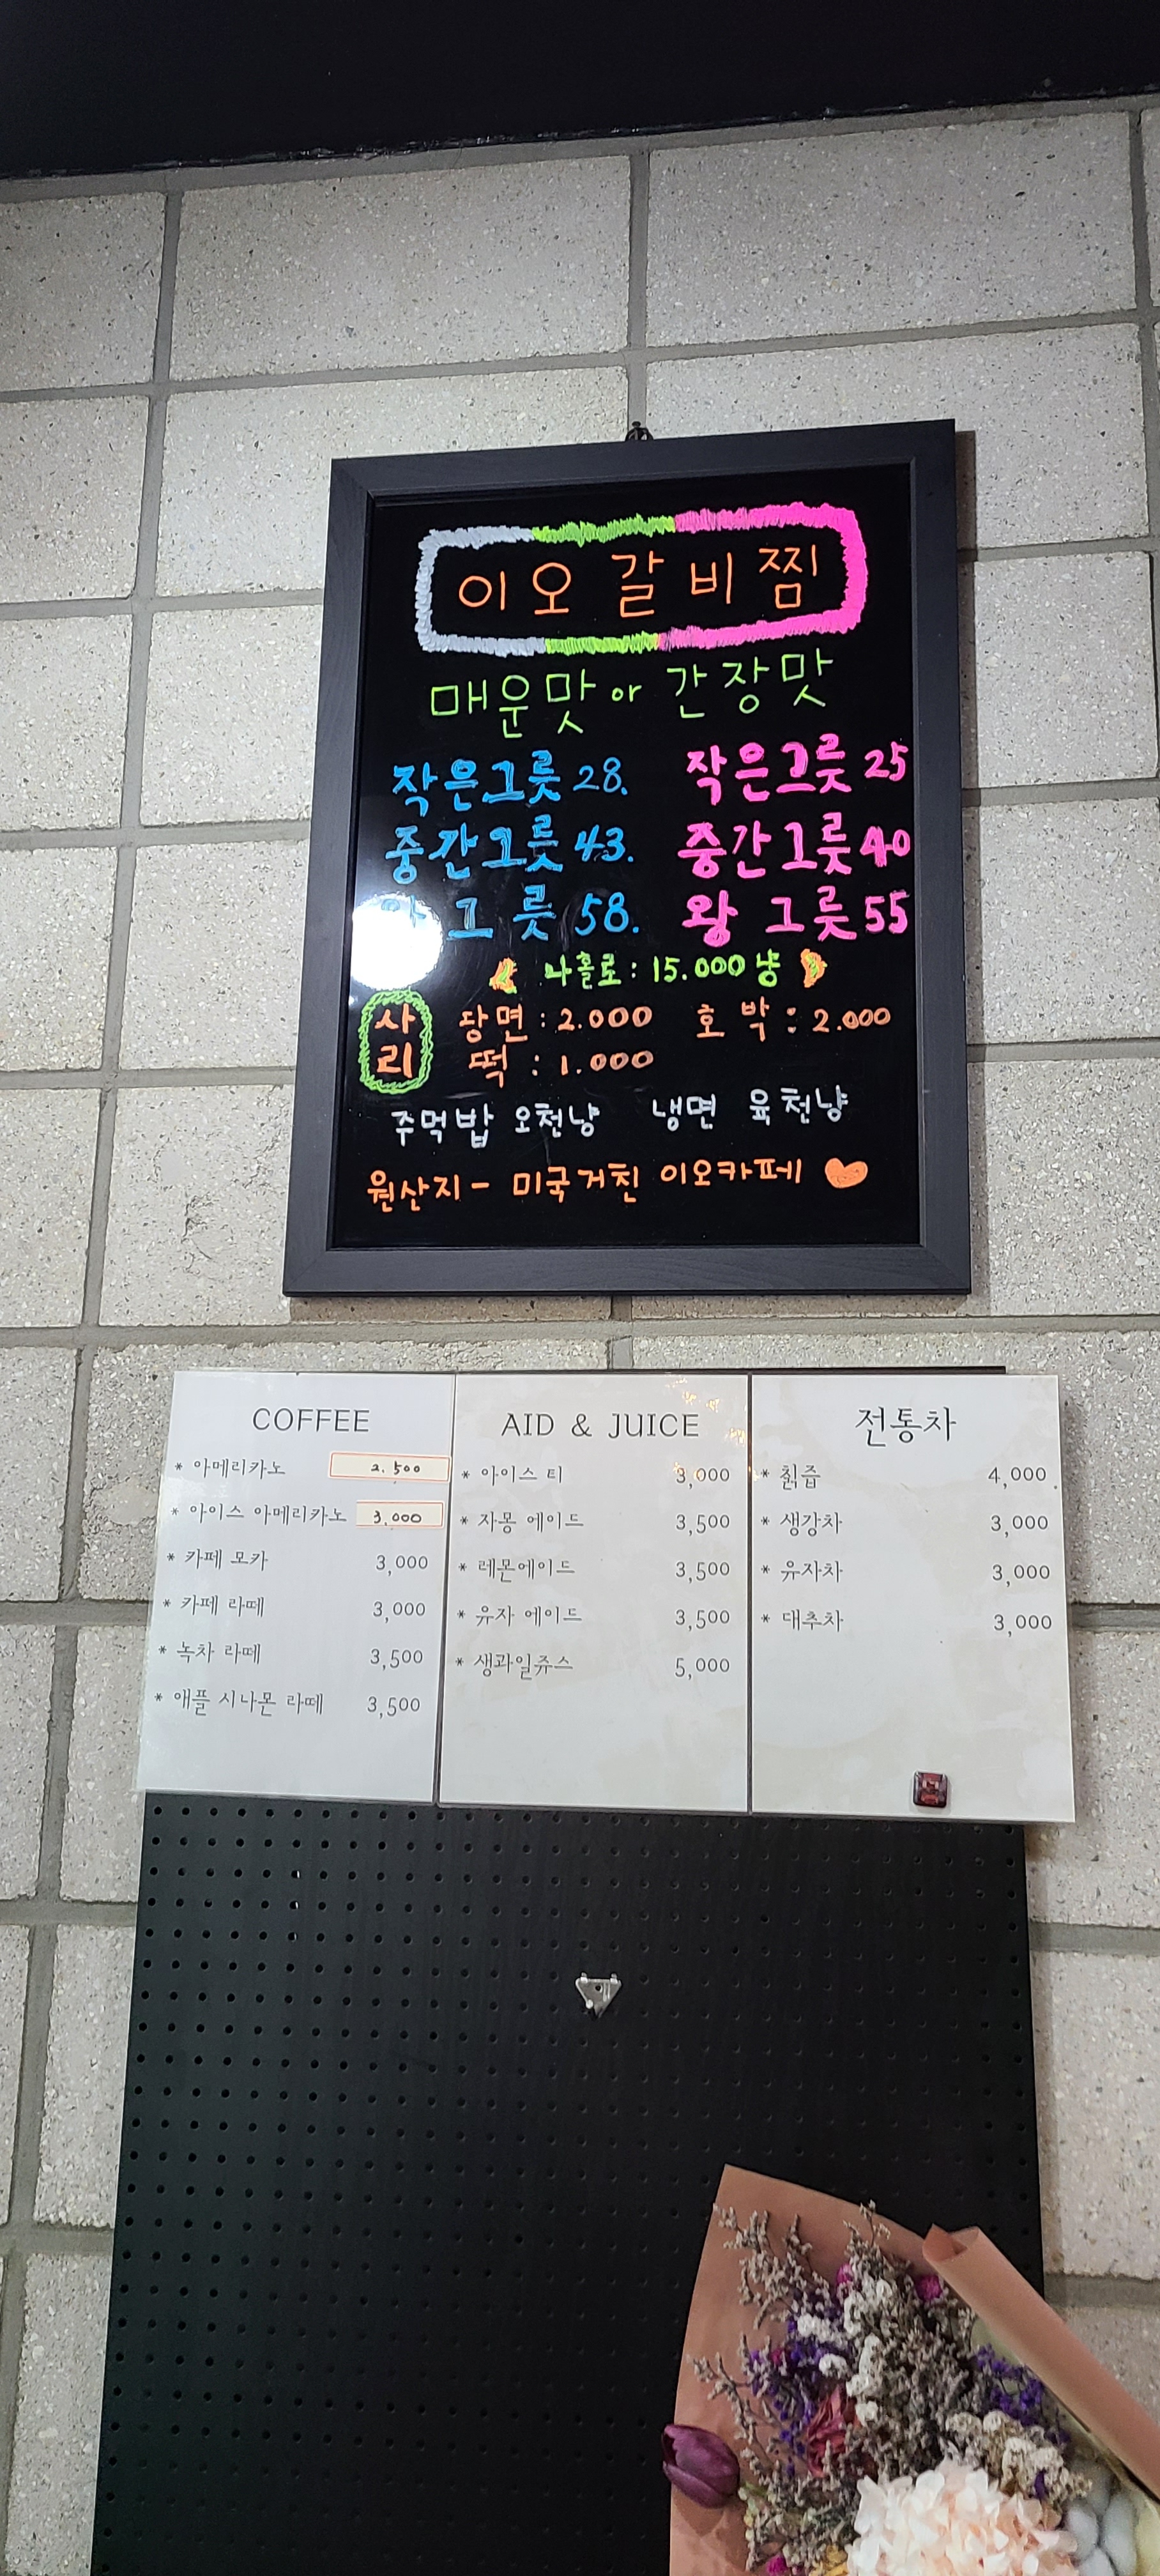 이오 갈비찜
매운맛 or 간장맛
작은그릇 28. 작은그릇 25
중간그릇 43. 중간그릇 40
그릇 58. 왕 그릇 55
나홀로 : 15.000 냥
사리
당면 : 2.000 호박 : 2.000
떡 : 1.000
주먹밥 오천냥 냉면 육천냥
원산지 - 미국거친 이오카페
COFFEE
* 아메리카노 2.500
* 아이스 아메리카노 3.000
* 카페 모카 3,000
* 카페 라떼 3,000
* 녹차 라떼 3,500
* 애플 시나몬 라떼 3,500
AID & JUICE
* 아이스 티 3,000
* 자몽 에이드 3,500
* 레몬에이드 3,500
* 유자 에이드 3,500
* 생과일쥬스 5,000
전통차
* 칡즙 4,000
* 생강차 3,000
* 유자차 3,000
* 대추차 3,000